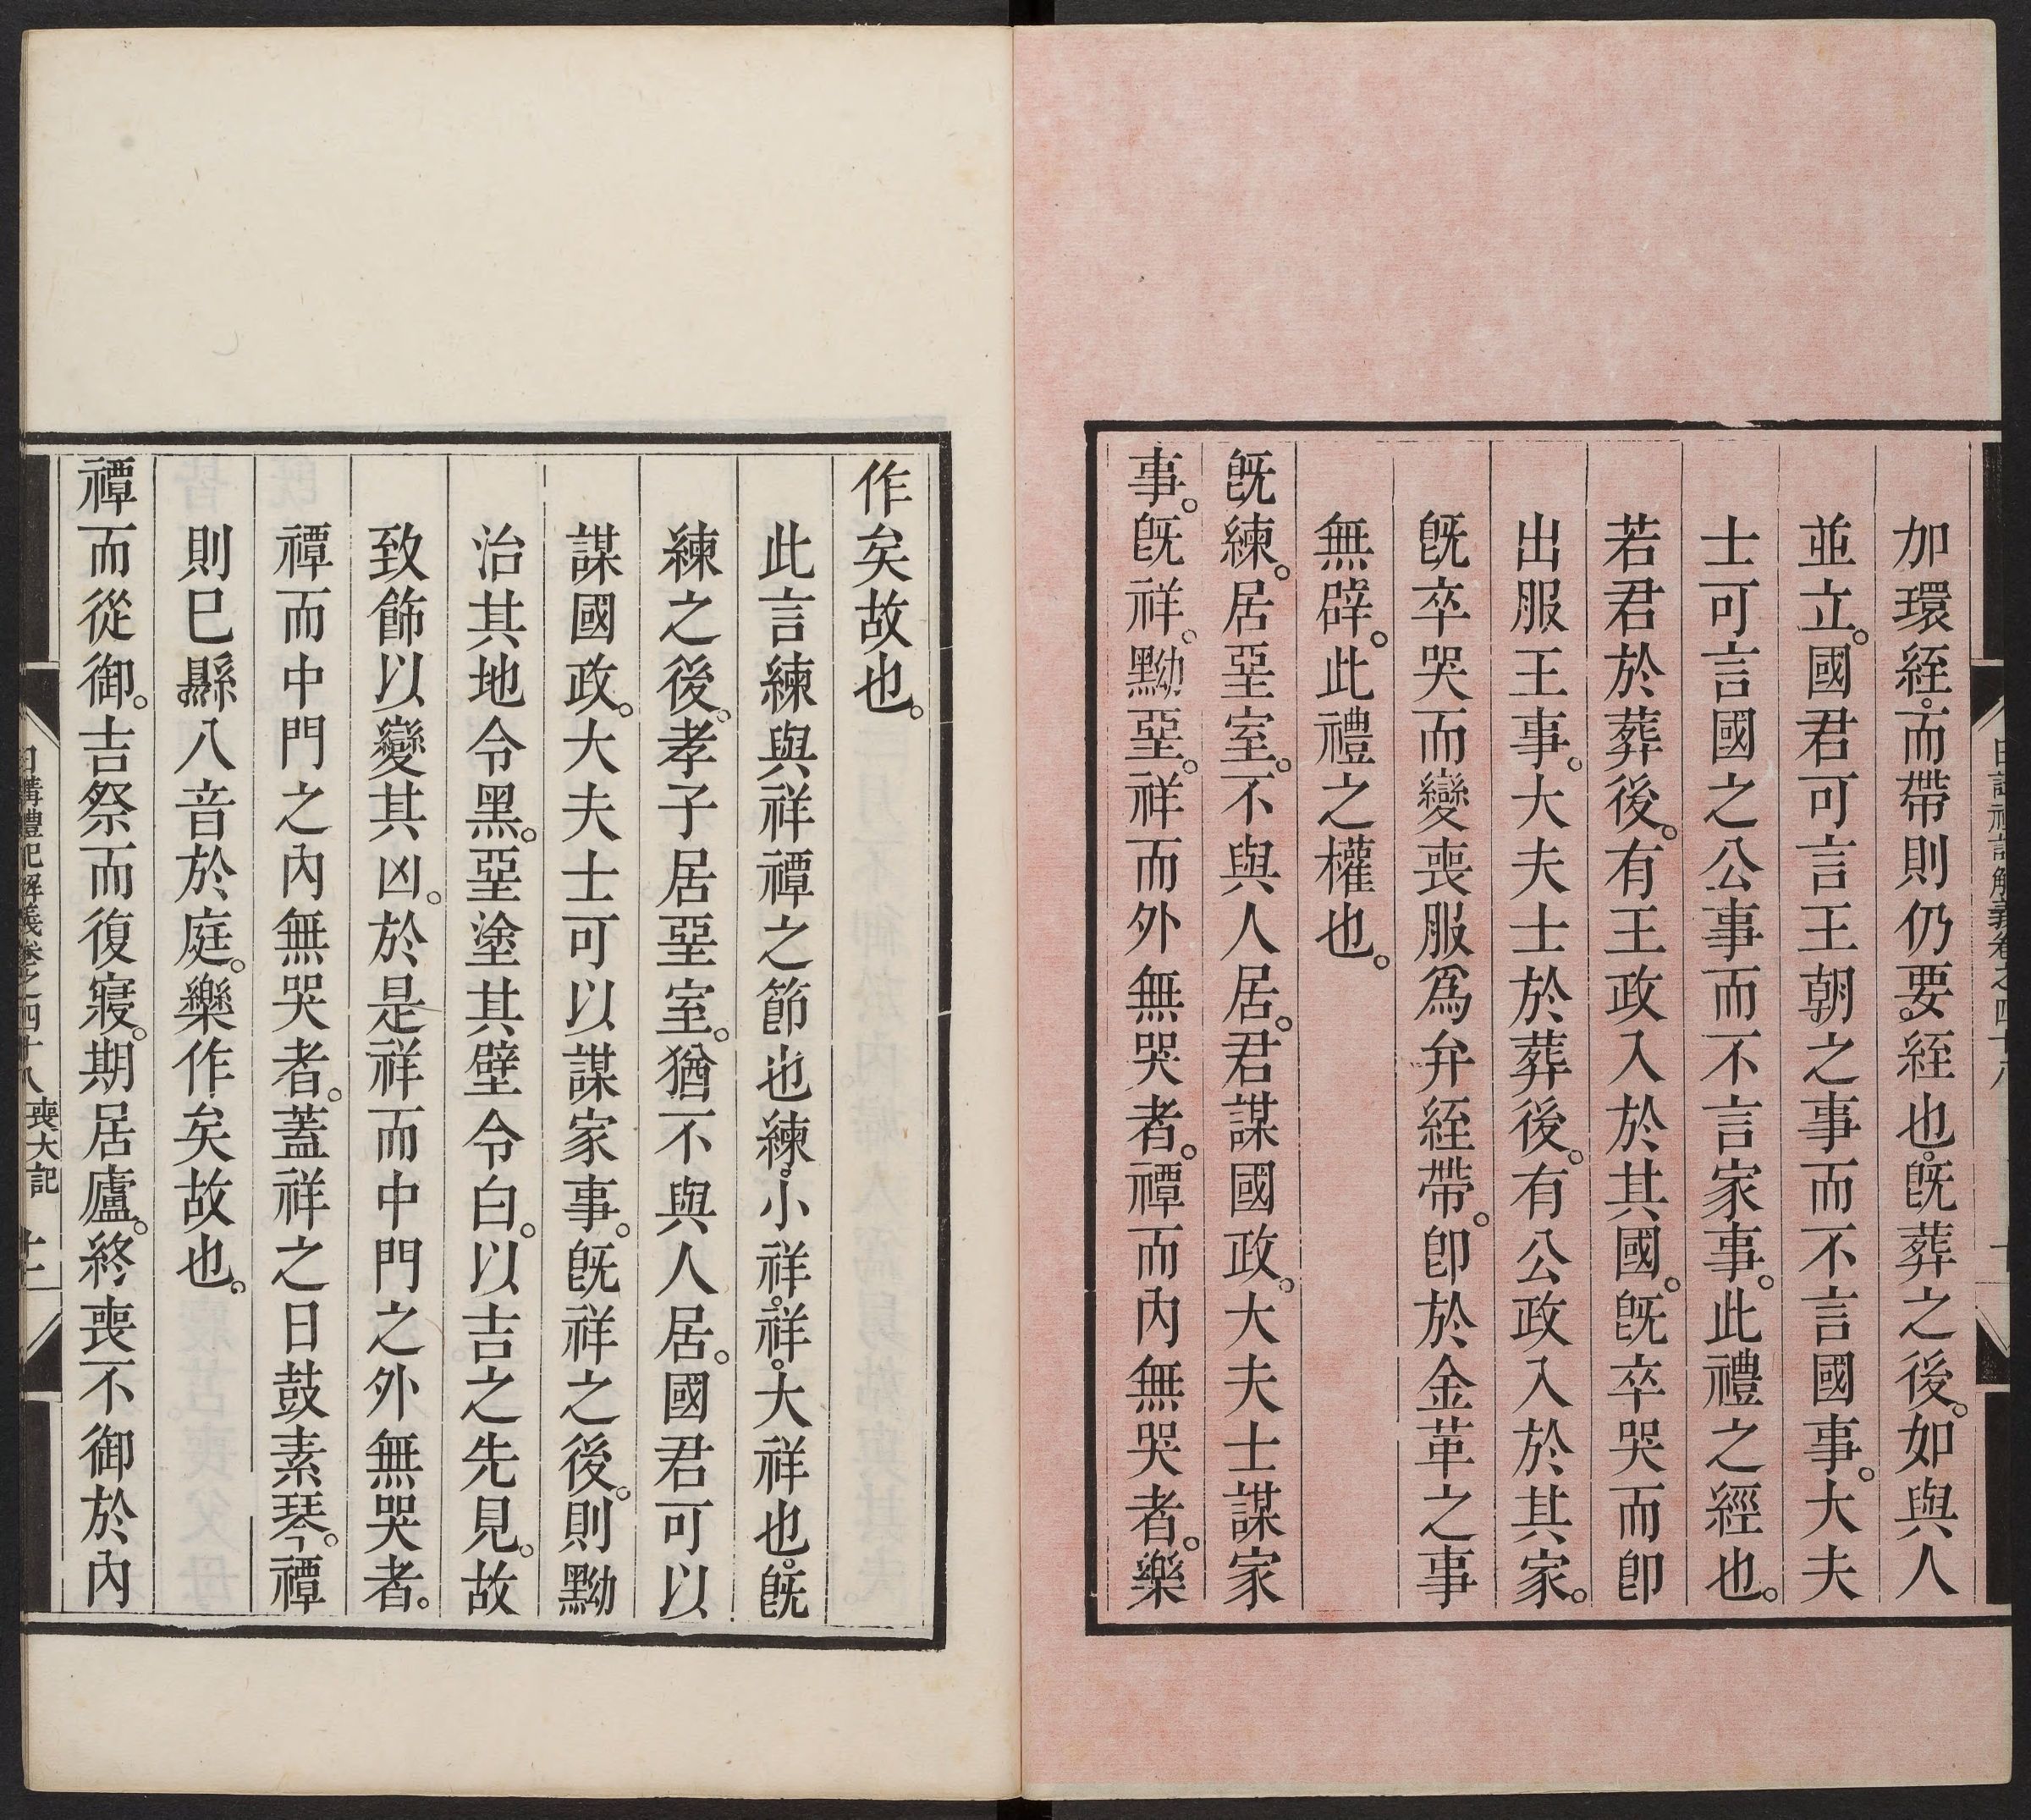 加環絰。而帶則仍要絰也。旣葬之後。如與人
並立。國君可言王朝之事而不言國事。大夫
士可言國之公事而不言家事。此禮之經也。
若君於葬後。有王政入於其國。旣卒哭而卽
出服王事。大夫士於葬後。有公政入於其家。
旣卒哭而變喪服爲弁絰帶。卽於金革之事
無辟。此禮之權也。
旣練。居堊室。不與人居。君謀國政。大夫士謀家
事。旣祥。黝堊。祥而外無哭者。禫而內無哭者。樂
作矣故也。
此言練與祥禫之節也。練。小祥。祥。大祥也。旣
練之後。孝子居堊室。猶不與人居。國君可以
謀國政。大夫士可以謀家事。旣祥之後。則黝
治其地令黑。堊塗其壁令白。以吉之先見。故
致飾以變其凶。於是祥而中門之外無哭者。
禫而中門之內無哭者。蓋祥之日鼓素琴。禫
則巳縣八音於庭。樂作矣故也。
禫而從御。吉祭而復寢。期居廬。終喪不御於內
日講禮記解義卷之四十八 喪大記 十一